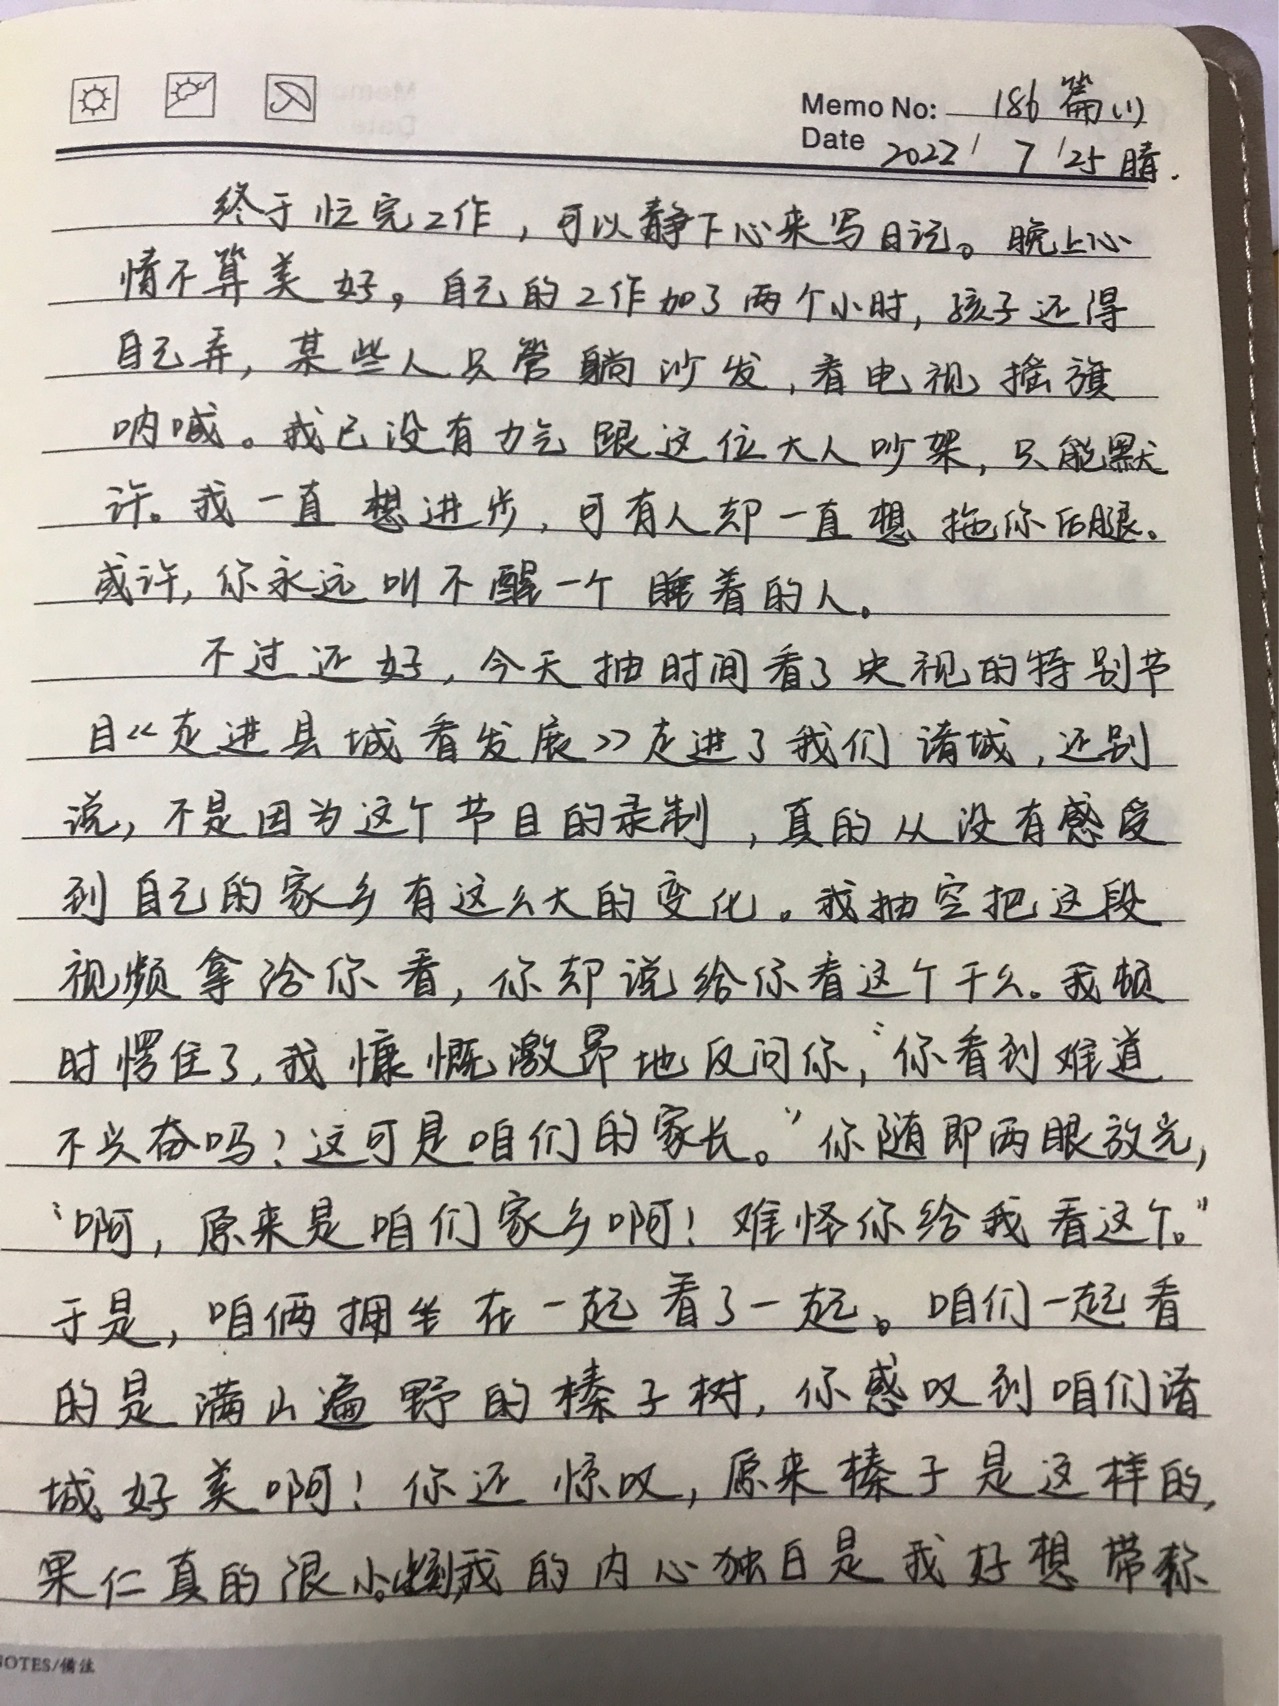 Memo No: 186篇(1)
Date 2022/7/25晴.
终于忙完工作，可以静下心来写日记。晚上心
情不算美好，自己的工作加了两个小时，孩子还得
自己弄，某些人只管躺沙发，看电视摇旗
呐喊。我已没有力气跟这位大人吵架，只能默
许。我一直想进步，可有人却一直想拖你后腿。
或许，你永远叫不醒一个睡着的人。
不过还好，今天抽时间看了央视的特别节
目《走进县城看发展》走进了我们诸城，还别
说，不是因为这个节目的录制，真的从没有感受
到自己的家乡有这么大的变化。我抽空把这段
视频拿给你看，你却说给你看这个干么。我顿
时愣住了，我慷慨激昂地反问你，“你看到难道
不兴奋吗？这可是咱们的家长。”你随即两眼放光，
“啊，原来是咱们家乡啊！难怪你给我看这个。”
于是，咱俩拥坐在一起看了一起。咱们一起看
的是满山遍野的榛子树，你感叹到咱们诸
城好美啊！你还惊叹，原来榛子是这样的，
果仁真的很小。我的内心独白是我好想带称
NOTES/備注